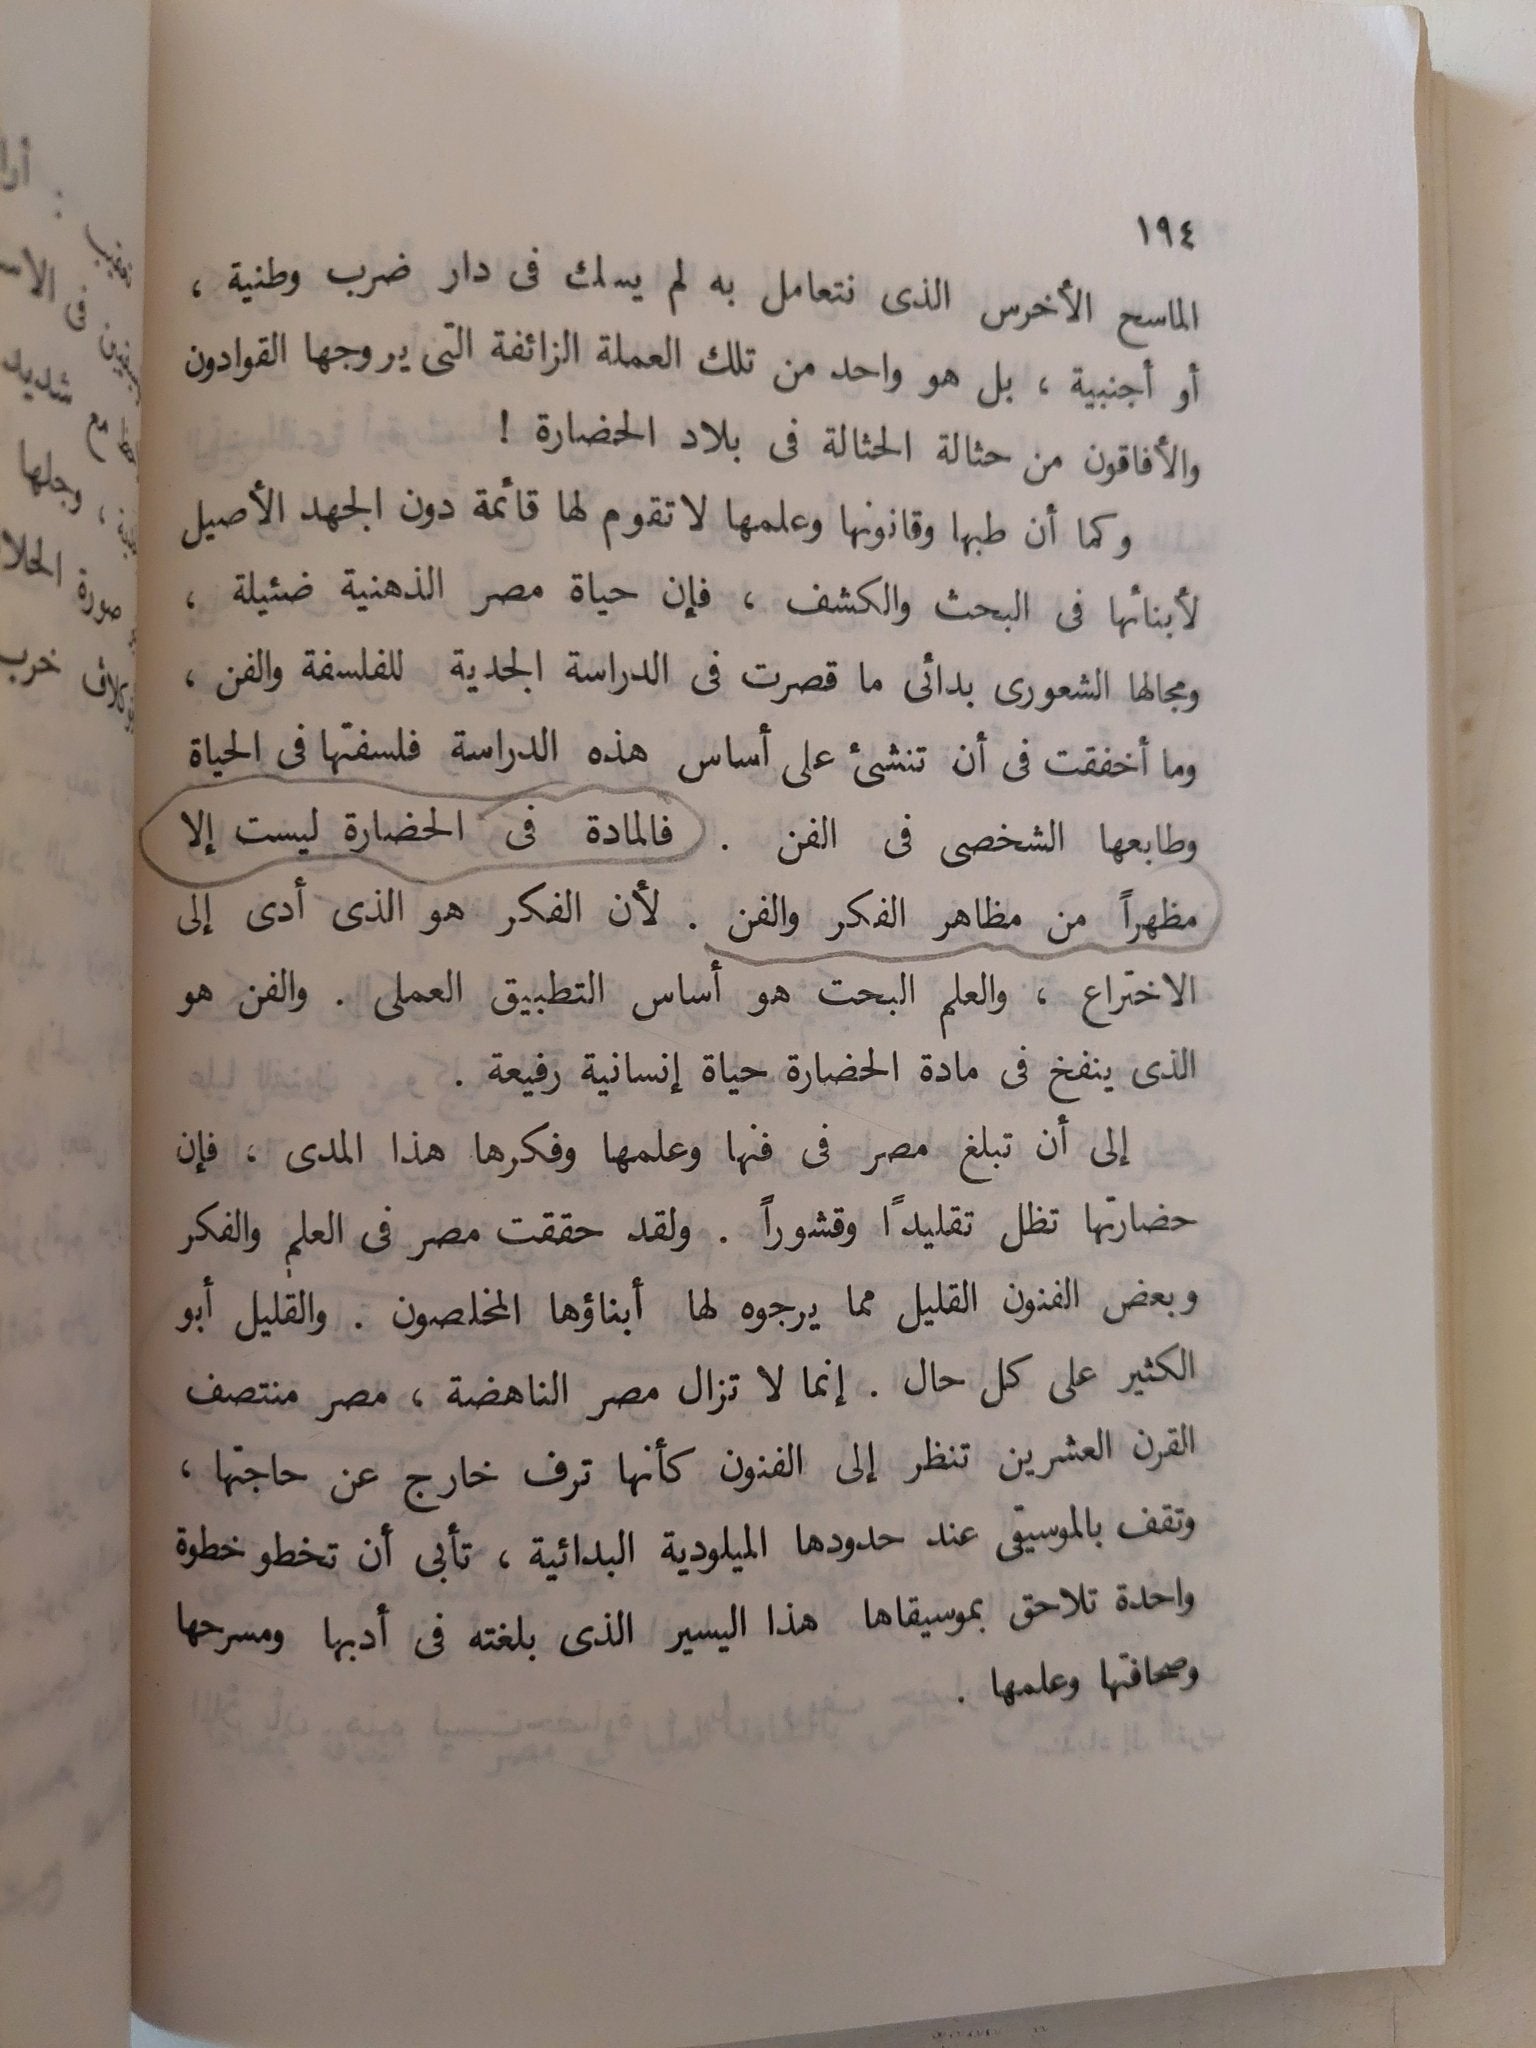 ١٩٤
الماسح الأخرس الذى نتعامل به لم يسك فى دار ضرب وطنية ،
أو أجنبية ، بل هو واحد من تلك العملة الزائفة التى يروجها القوادون
والأفاقون من حثالة الحثالة فى بلاد الحضارة !
وكما أن طبها وقانونها وعلمها لا تقوم لها قائمة دون الجهد الأصيل
لأبنائها فى البحث والكشف ، فإن حياة مصر الذهنية ضئيلة ،
ومجالها الشعورى بدائى ما قصرت فى الدراسة الجدية للفلسفة والفن ،
وما أخفقت فى أن تنشئ على أساس هذه الدراسة فلسفتها فى الحياة
وطابعها الشخصى فى الفن . فالمادة فى الحضارة ليست إلا
مظهراً من مظاهر الفكر والفن . لأن الفكر هو الذى أدى إلى
الاختراع ، والعلم البحت هو أساس التطبيق العملى . والفن هو
الذى ينفخ فى مادة الحضارة حياة إنسانية رفيعة .
إلى أن تبلغ مصر فى فنها وعلمها وفكرها هذا المدى ، فإن
حضارتها تظل تقليداً وقشوراً . ولقد حققت مصر فى العلم والفكر
وبعض الفنون القليل مما يرجوه لها أبناؤها المخلصون . والقليل أبو
الكثير على كل حال . إنما لا تزال مصر الناهضة ، مصر منتصف
القرن العشرين تنظر إلى الفنون كأنها ترف خارج عن حاجتها ،
وتقف بالموسيقى عند حدودها الميلودية البدائية ، تأبى أن تخطو خطوة
واحدة تلاحق بموسيقاها هذا اليسير الذى بلغته فى أدبها ومسرحها
وصحافتها وعلمها .